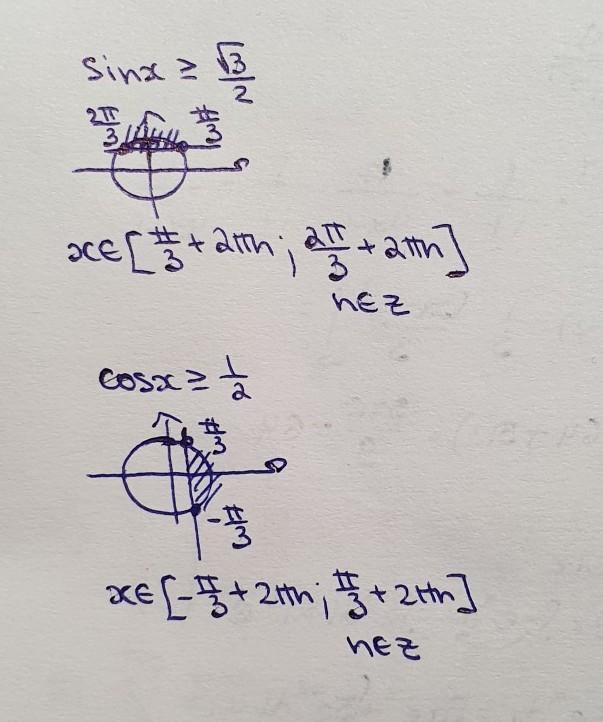 sinx ≥ √3/2
2π/3 π/3
x∈[π/3 + 2πn; 2π/3 + 2πn]
n∈Z
cosx ≥ 1/2
π/3
-π/3
x∈[-π/3 + 2πn; π/3 + 2πn]
n∈Z